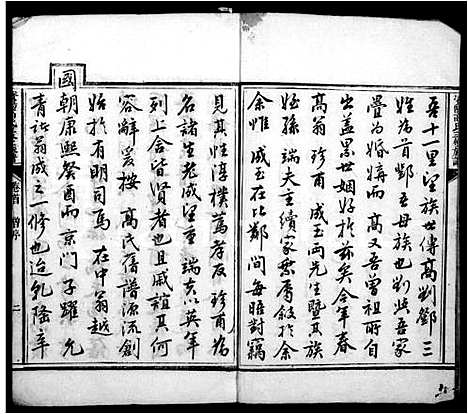 吾十一里望族世傳高劉鄧三
姓而為首鄒吾母族也則與吾家
疊為婚姻高又吾曾祖所自
出蓋累世姻好於茲矣今年春
高翁珍甫成玉两先生暨其族
姪孫端夫主續家乘屬敘於余
余惟成玉在比鄰間每晤對竊
見其性淳樸篤孝友珍甫為
名諸生老成望重端夫以英年
列上舍皆賢者也且戚誼其何
容辭爰按高氏舊譜源流創
始於有明司馬在中翁越
國朝康熙癸酉而京門子躍允
青訢翁成之一修也迨乾隆辛
卷首
二